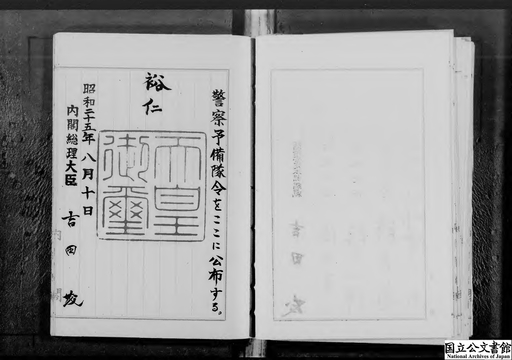 警察予備隊令をここに公布する。
裕仁
天皇
御璽
昭和二十五年八月十日
内閣総理大臣 吉田茂
国立公文書館
National Archives of Japan